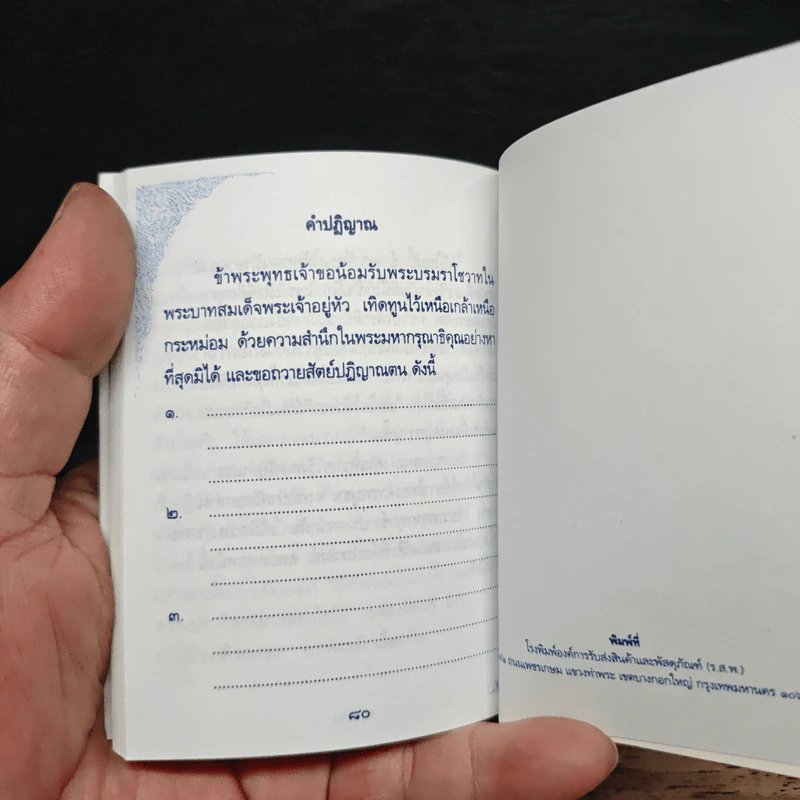 คำปฏิญาณ
ข้าพระพุทธเจ้าขอน้อมรับพระบรมราโชวาทใน
พระบาทสมเด็จพระเจ้าอยู่หัว เทิดทูนไว้เหนือเกล้าเหนือ
กระหม่อม ด้วยความสำนึกในพระมหากรุณาธิคุณอย่างหา
ที่สุดมิได้ และขอถวายสัตย์ปฏิญาณตน ดังนี้
๑.
๒.
๓.
๘๐
พิมพ์ที่
โรงพิมพ์องค์การรับส่งสินค้าและพัสดุภัณฑ์ (ร.ส.พ.)
ถนนเพชรเกษม แขวงท่าพระ เขตบางกอกใหญ่ กรุงเทพมหานคร